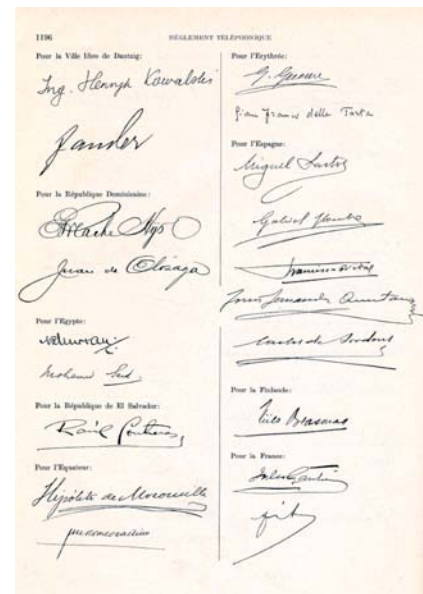 1196
RÈGLEMENT TÉLÉPHONIQUE
Pour la Ville libre de Dantzig:
Ing. Henryk Kowalski
Zander
Pour la République Dominicaine:
Juan de Olózaga
Pour l'Egypte:
Pour la République de El Salvador:
Raúl Contreras
Pour l'Equateur:
Hipólito de Mozoncillo
Pour l'Erythrée:
G. Gneme
Gian Franco della Porta
Pour l'Espagne:
Miguel Sastre
Gabriel Hombre
Pour la Finlande:
Niilo Orasmaa
Pour la France:
Jules Gautier